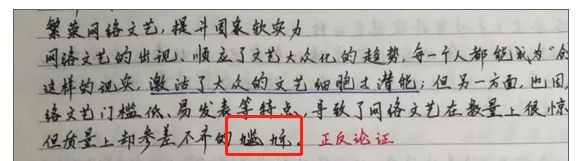 繁荣网络文艺，提升国家软实力
网络文艺的出现，顺应了文艺大众化的趋势，每一个人都能成为"创
这样的现实，激活了大众的文艺细胞与潜能；但另一方面，也因
络文艺门槛低、易发表等特点，导致了网络文艺在数量上很惊
但质量上却参差不齐的尴尬。正反论证